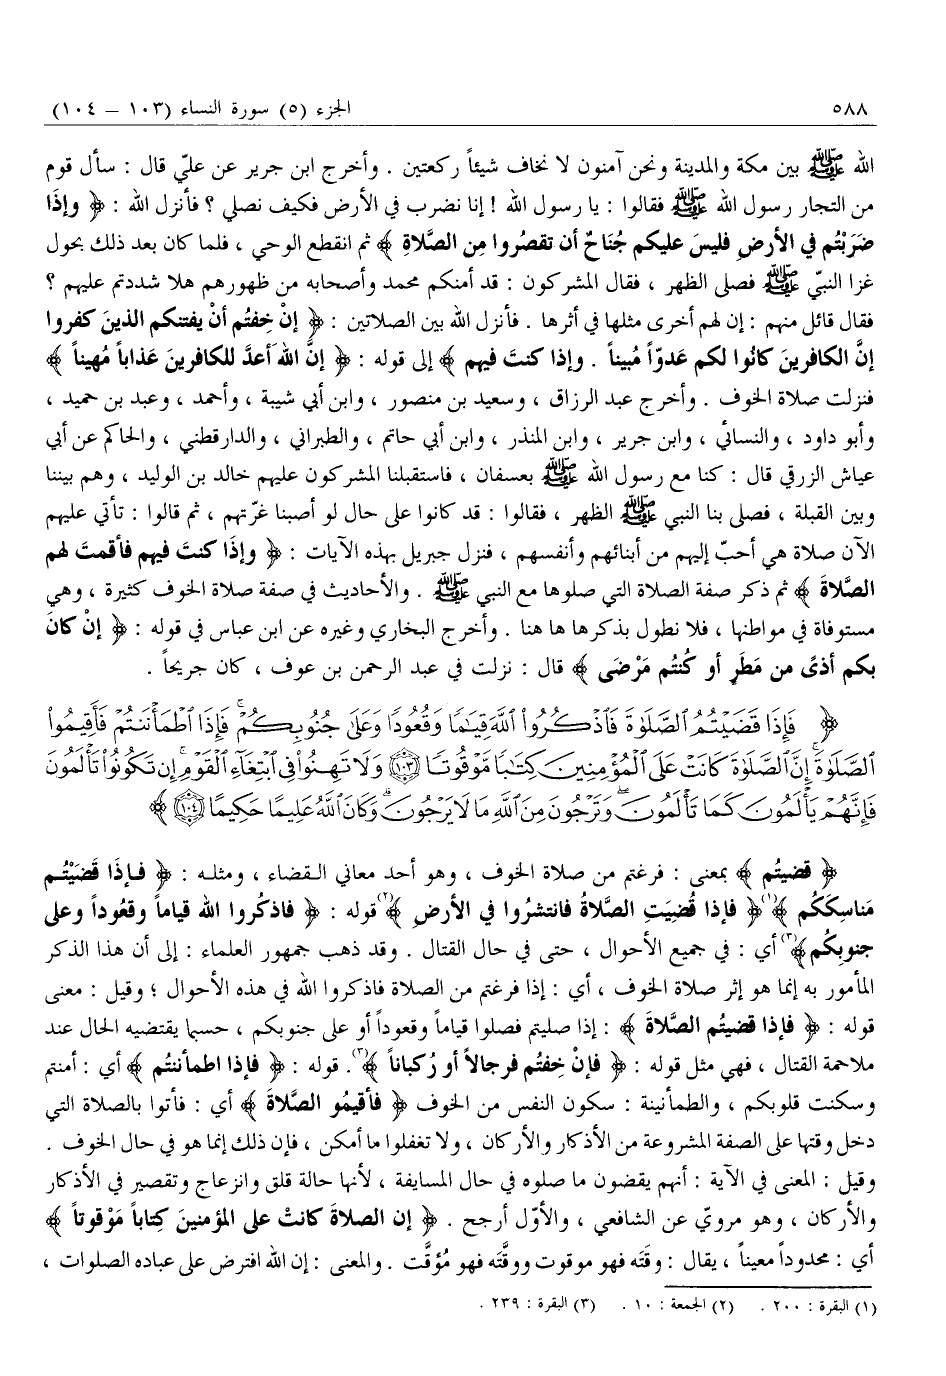 ٥٨٨ الجزء (٥) سورة النساء (١٠٣ – ١٠٤)
الله ﷺ بين مكة والمدينة ونحن آمنون لا نخاف شيئاً ركعتين . وأخرج ابن جرير عن عليّ قال : سأل قوم
من التجار رسول الله ﷺ فقالوا : يا رسول الله ! إنا نضرب في الأرض فكيف نصلي ؟ فأنزل الله : ﴿ وإذَا
ضَرَبْتُم في الأرضِ فليسَ عليكم جُنَاحٌ أن تقصُروا مِن الصَّلاةِ ﴾ ثم انقطع الوحي ، فلما كان بعد ذلك بحول
غزا النبيّ ﷺ فصلى الظهر ، فقال المشركون : قد أمنكم محمد وأصحابه من ظهورهم هلا شددتم عليهم ؟
فقال قائل منهم : إن لهم أخرى مثلها في أثرها . فأنزل الله بين الصلاتين : ﴿ إنْ خِفتُم أنْ يفتنكم الذينَ كفروا
إنَّ الكافرينَ كانُوا لكم عَدوّاً مُبيناً . وإذا كنتَ فيهم ﴾ إلى قوله : ﴿ إنَّ اللهَ أعدَّ للكافرينَ عَذاباً مُهيناً ﴾
فنزلت صلاة الخوف . وأخرج عبد الرزاق ، وسعيد بن منصور ، وابن أبي شيبة ، وأحمد ، وعبد بن حميد ،
وأبو داود ، والنسائي ، وابن جرير ، وابن المنذر ، وابن أبي حاتم ، والطبراني ، والدارقطني ، والحاكم عن أبي
عياش الزرقي قال : كنا مع رسول الله ﷺ بعسفان ، فاستقبلنا المشركون عليهم خالد بن الوليد ، وهم بيننا
وبين القبلة ، فصلى بنا النبي ﷺ الظهر ، فقالوا : قد كانوا على حال لو أصبنا غرّتهم ، ثم قالوا : تأتي عليهم
الآن صلاة هي أحبّ إليهم من أبنائهم وأنفسهم ، فنزل جبريل بهذه الآيات : ﴿ وإذَا كنتَ فيهم فأقمتَ لهم
الصَّلاةَ ﴾ ثم ذكر صفة الصلاة التي صلوها مع النبي ﷺ . والأحاديث في صفة صلاة الخوف كثيرة ، وهي
مستوفاة في مواطنها ، فلا نطول بذكرها ها هنا . وأخرج البخاري وغيره عن ابن عباس في قوله : ﴿ إنْ كانَ
بكم أذىً من مَطَرٍ أو كُنتُم مَرْضَى ﴾ قال : نزلت في عبد الرحمن بن عوف ، كان جريحاً .
﴿ فَإِذَا قَضَيْتُمُ ٱلصَّلَوٰةَ فَٱذْكُرُوا۟ ٱللَّهَ قِيَٰمًا وَقُعُودًا وَعَلَىٰ جُنُوبِكُمْ ۚ فَإِذَا ٱطْمَأْنَنتُمْ فَأَقِيمُوا۟
ٱلصَّلَوٰةَ ۚ إِنَّ ٱلصَّلَوٰةَ كَانَتْ عَلَى ٱلْمُؤْمِنِينَ كِتَٰبًا مَّوْقُوتًا ١٠٣ وَلَا تَهِنُوا۟ فِى ٱبْتِغَآءِ ٱلْقَوْمِ ۖ إِن تَكُونُوا۟ تَأْلَمُونَ
فَإِنَّهُمْ يَأْلَمُونَ كَمَا تَأْلَمُونَ ۖ وَتَرْجُونَ مِنَ ٱللَّهِ مَا لَا يَرْجُونَ ۗ وَكَانَ ٱللَّهُ عَلِيمًا حَكِيمًا ١٠٤ ﴾
﴿ قضيتُم ﴾ بمعنى : فرغتم من صلاة الخوف ، وهو أحد معاني القضاء ، ومثله : ﴿ فإذَا قَضَيْتُم
مَناسِكَكُم ﴾(١) ﴿ فإذا قُضِيَتِ الصَّلاةُ فانتشرُوا في الأرضِ ﴾(٢) قوله : ﴿ فاذكُروا الله قياماً وقعُوداً وعلى
جنوبِكُم ﴾(٣) أي : في جميع الأحوال ، حتى في حال القتال . وقد ذهب جمهور العلماء : إلى أن هذا الذكر
المأمور به إنما هو إثر صلاة الخوف ، أي : إذا فرغتم من الصلاة فاذكروا الله في هذه الأحوال ؛ وقيل : معنى
قوله : ﴿ فإذا قضيتُم الصَّلاةَ ﴾ : إذا صليتم فصلوا قياماً وقعوداً أو على جنوبكم ، حسبما يقتضيه الحال عند
ملاحمة القتال ، فهي مثل قوله : ﴿ فإنْ خِفتُم فرجالاً أو رُكباناً ﴾(٣). قوله : ﴿ فإذا اطمأننتُم ﴾ أي : أمنتم
وسكنت قلوبكم ، والطمأنينة : سكون النفس من الخوف ﴿ فأقيمُو الصَّلاةَ ﴾ أي : فأتوا بالصلاة التي
دخل وقتها على الصفة المشروعة من الأذكار والأركان ، ولا تغفلوا ما أمكن ، فإن ذلك إنما هو في حال الخوف .
وقيل : المعنى في الآية : أنهم يقضون ما صلوه في حال المسايفة ، لأنها حالة قلق وانزعاج وتقصير في الأذكار
والأركان ، وهو مرويّ عن الشافعي ، والأوّل أرجح . ﴿ إن الصلاةَ كانتْ على المؤمنينَ كِتاباً مَوْقوتاً ﴾
أي : محدوداً معيناً ، يقال : وقَتَه فهو موقوت ووقَّتَه فهو مُؤقَّت . والمعنى : إن الله افترض على عباده الصلوات ،
(١) البقرة : ٢٠٠ . (٢) الجمعة : ١٠ . (٣) البقرة : ٢٣٩ .